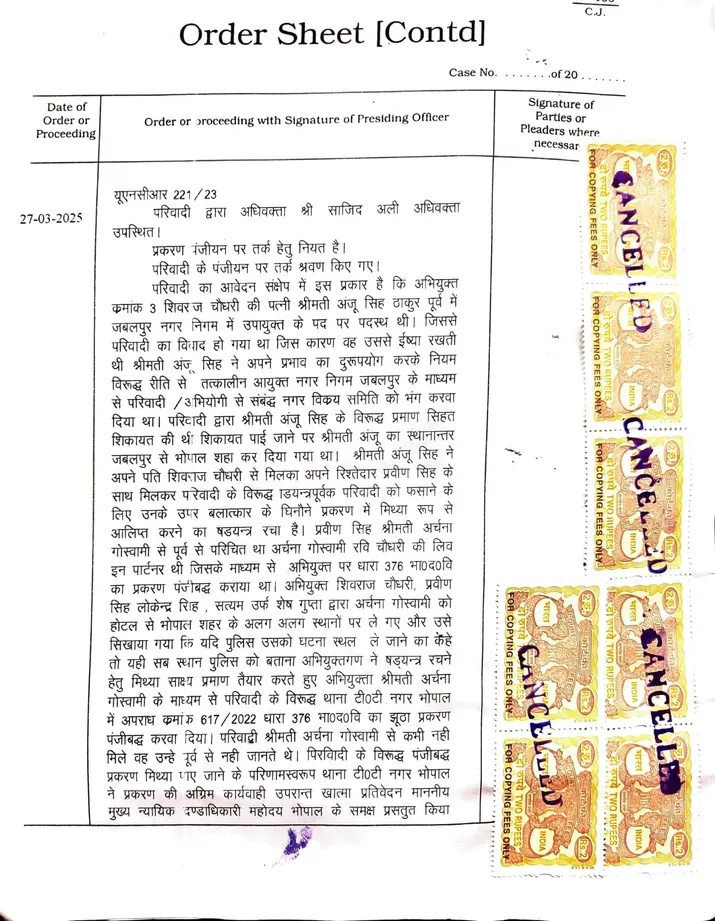 C.J.
Order Sheet [Contd]
Case No. ........of 20 .......
Date of Order or Proceeding
Order or proceeding with Signature of Presiding Officer
Signature of Parties or Pleaders where necessar
27-03-2025
यूएनसीआर 221/23
परिवादी द्वारा अधिवक्ता श्री साजिद अली अधिवक्ता
उपस्थित।
प्रकरण पंजीयन पर तर्क हेतु नियत है।
परिवादी के पंजीयन पर तर्क श्रवण किए गए।
परिवादी का आवेदन संक्षेप में इस प्रकार है कि अभियुक्त
कमांक 3 शिवराज चौधरी की पत्नी श्रीमती अंजू सिंह ठाकुर पूर्व में
जबलपुर नगर निगम में उपायुक्त के पद पर पदस्थ थी। जिससे
परिवादी का विवाद हो गया था जिस कारण वह उससे ईष्या रखती
थी श्रीमती अंजू सिंह ने अपने प्रभाव का दुरूपयोग करके नियम
विरूद्ध रीति से तत्कालीन आयुक्त नगर निगम जबलपुर के माध्यम
से परिवादी /अभियोगी से संबंद्ध नगर विकय समिति को भंग करवा
दिया था। परिवादी द्वारा श्रीमती अंजू सिंह के विरूद्ध प्रमाण सिहत
शिकायत की थी शिकायत पाई जाने पर श्रीमती अंजू का स्थानान्तर
जबलपुर से भोपाल शहा कर दिया गया था। श्रीमती अंजू सिंह ने
अपने पति शिवराज चौधरी से मिलका अपने रिश्तेदार प्रवीण सिंह के
साथ मिलकर परिवादी के विरूद्ध डयन्त्रपूर्वक परिवादी को फसाने के
लिए उनके उपर बलात्कार के घिनौने प्रकरण में मिथ्या रूप से
आलिप्त करने का षडयन्त्र रचा है। प्रवीण सिंह श्रीमती अर्चना
गोस्वामी से पूर्व से परिचित था अर्चना गोस्वामी रवि चौधरी की लिव
इन पार्टनर थी जिसके माध्यम से अभियुक्त पर धारा 376 भा0द0वि
का प्रकरण पंजीबद्ध कराया था। अभियुक्त शिवराज चौधरी, प्रवीण
सिंह लोकेन्द्र सिंह , सत्यम उर्फ शेष गुप्ता द्वारा अर्चना गोस्वामी को
होटल से भोपाल शहर के अलग अलग स्थानों पर ले गए और उसे
सिखाया गया कि यदि पुलिस उसको घटना स्थल ले जाने का कहे
तो यही सब स्थान पुलिस को बताना अभियुक्तगण ने षड्यन्त्र रचने
हेतु मिथ्या साक्ष्य प्रमाण तैयार करते हुए अभियुक्ता श्रीमती अर्चना
गोस्वामी के माध्यम से परिवादी के विरूद्ध थाना टी0टी नगर भोपाल
में अपराध कमांक 617/2022 धारा 376 भा0द0वि का झूठा प्रकरण
पंजीबद्ध करवा दिया। परिवादी श्रीमती अर्चना गोस्वामी से कभी नही
मिले वह उन्हे पूर्व से नही जानते थे। पिरविादी के विरूद्ध पंजीबद्ध
प्रकरण मिथ्या पाए जाने के परिणामस्वरूप थाना टी0टी नगर भोपाल
ने प्रकरण की अग्रिम कार्यवाही उपरान्त खात्मा प्रतिवेदन माननीय
मुख्य न्यायिक दण्डाधिकारी महोदय भोपाल के समक्ष प्रसतुत किया
CANCELLED
CANCELLED
CANCELLED
CANCELLED
FOR COPYING FEES ONLY
दो रुपये TWO RUPEES
भारत
INDIA
Rs.2